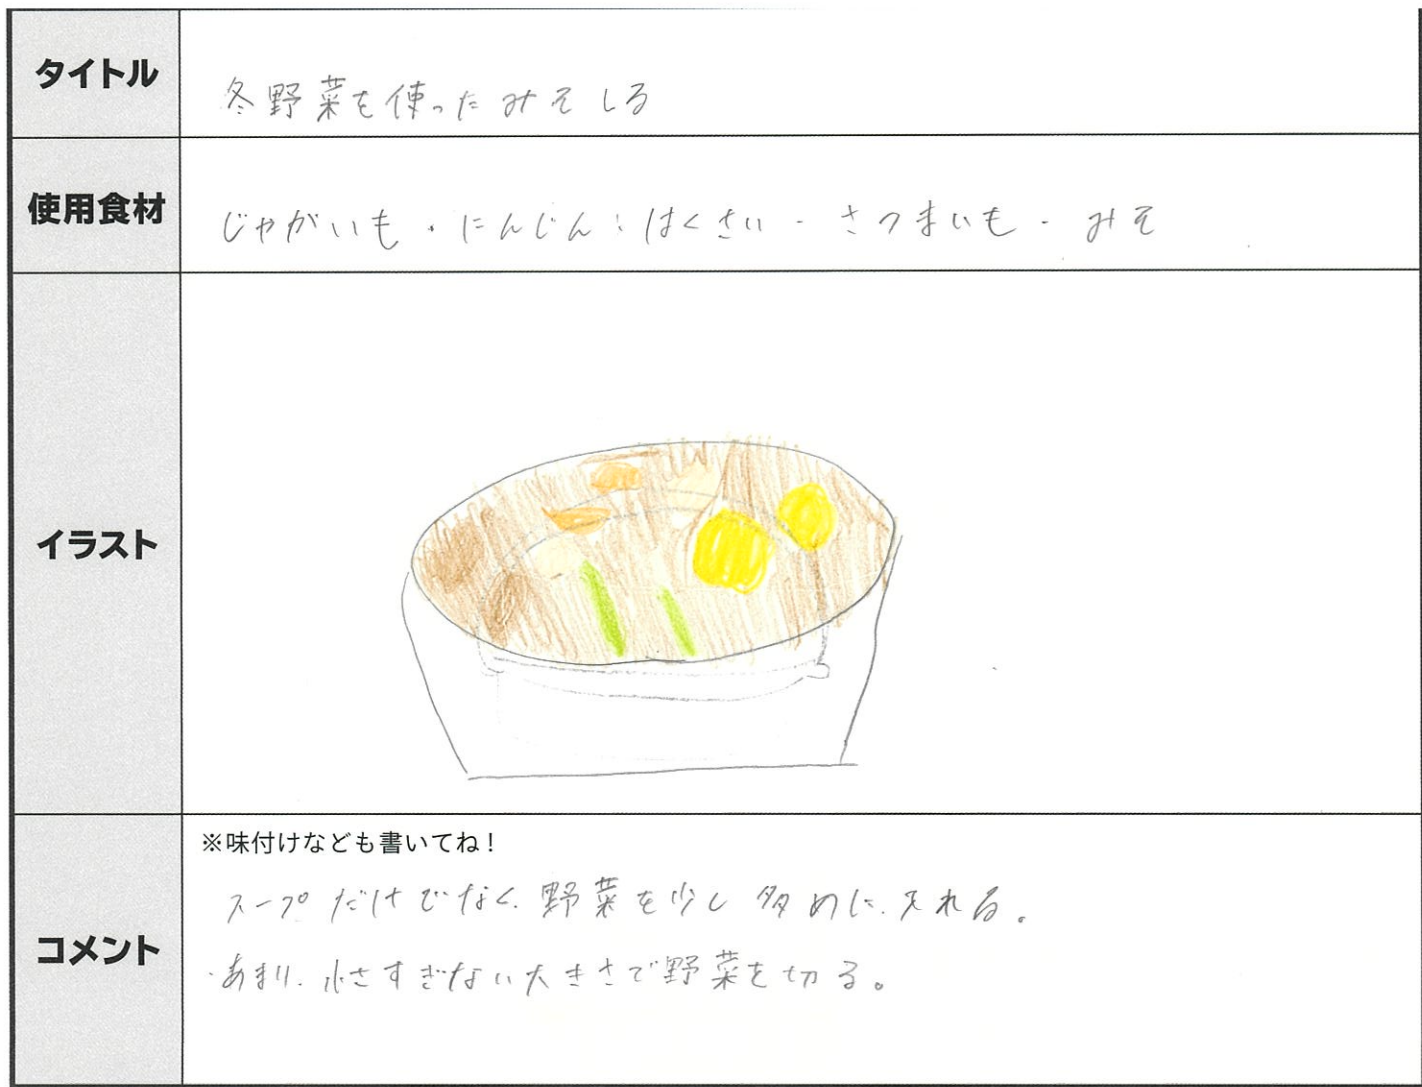 タイトル
冬野菜を使ったみそしる
使用食材
じゃがいも・にんじん・はくさい・さつまいも・みそ
イラスト
コメント
※味付けなども書いてね!
スープだけでなく、野菜を少し多めに、入れる。
・あまり、小さすぎない大きさで野菜を切る。